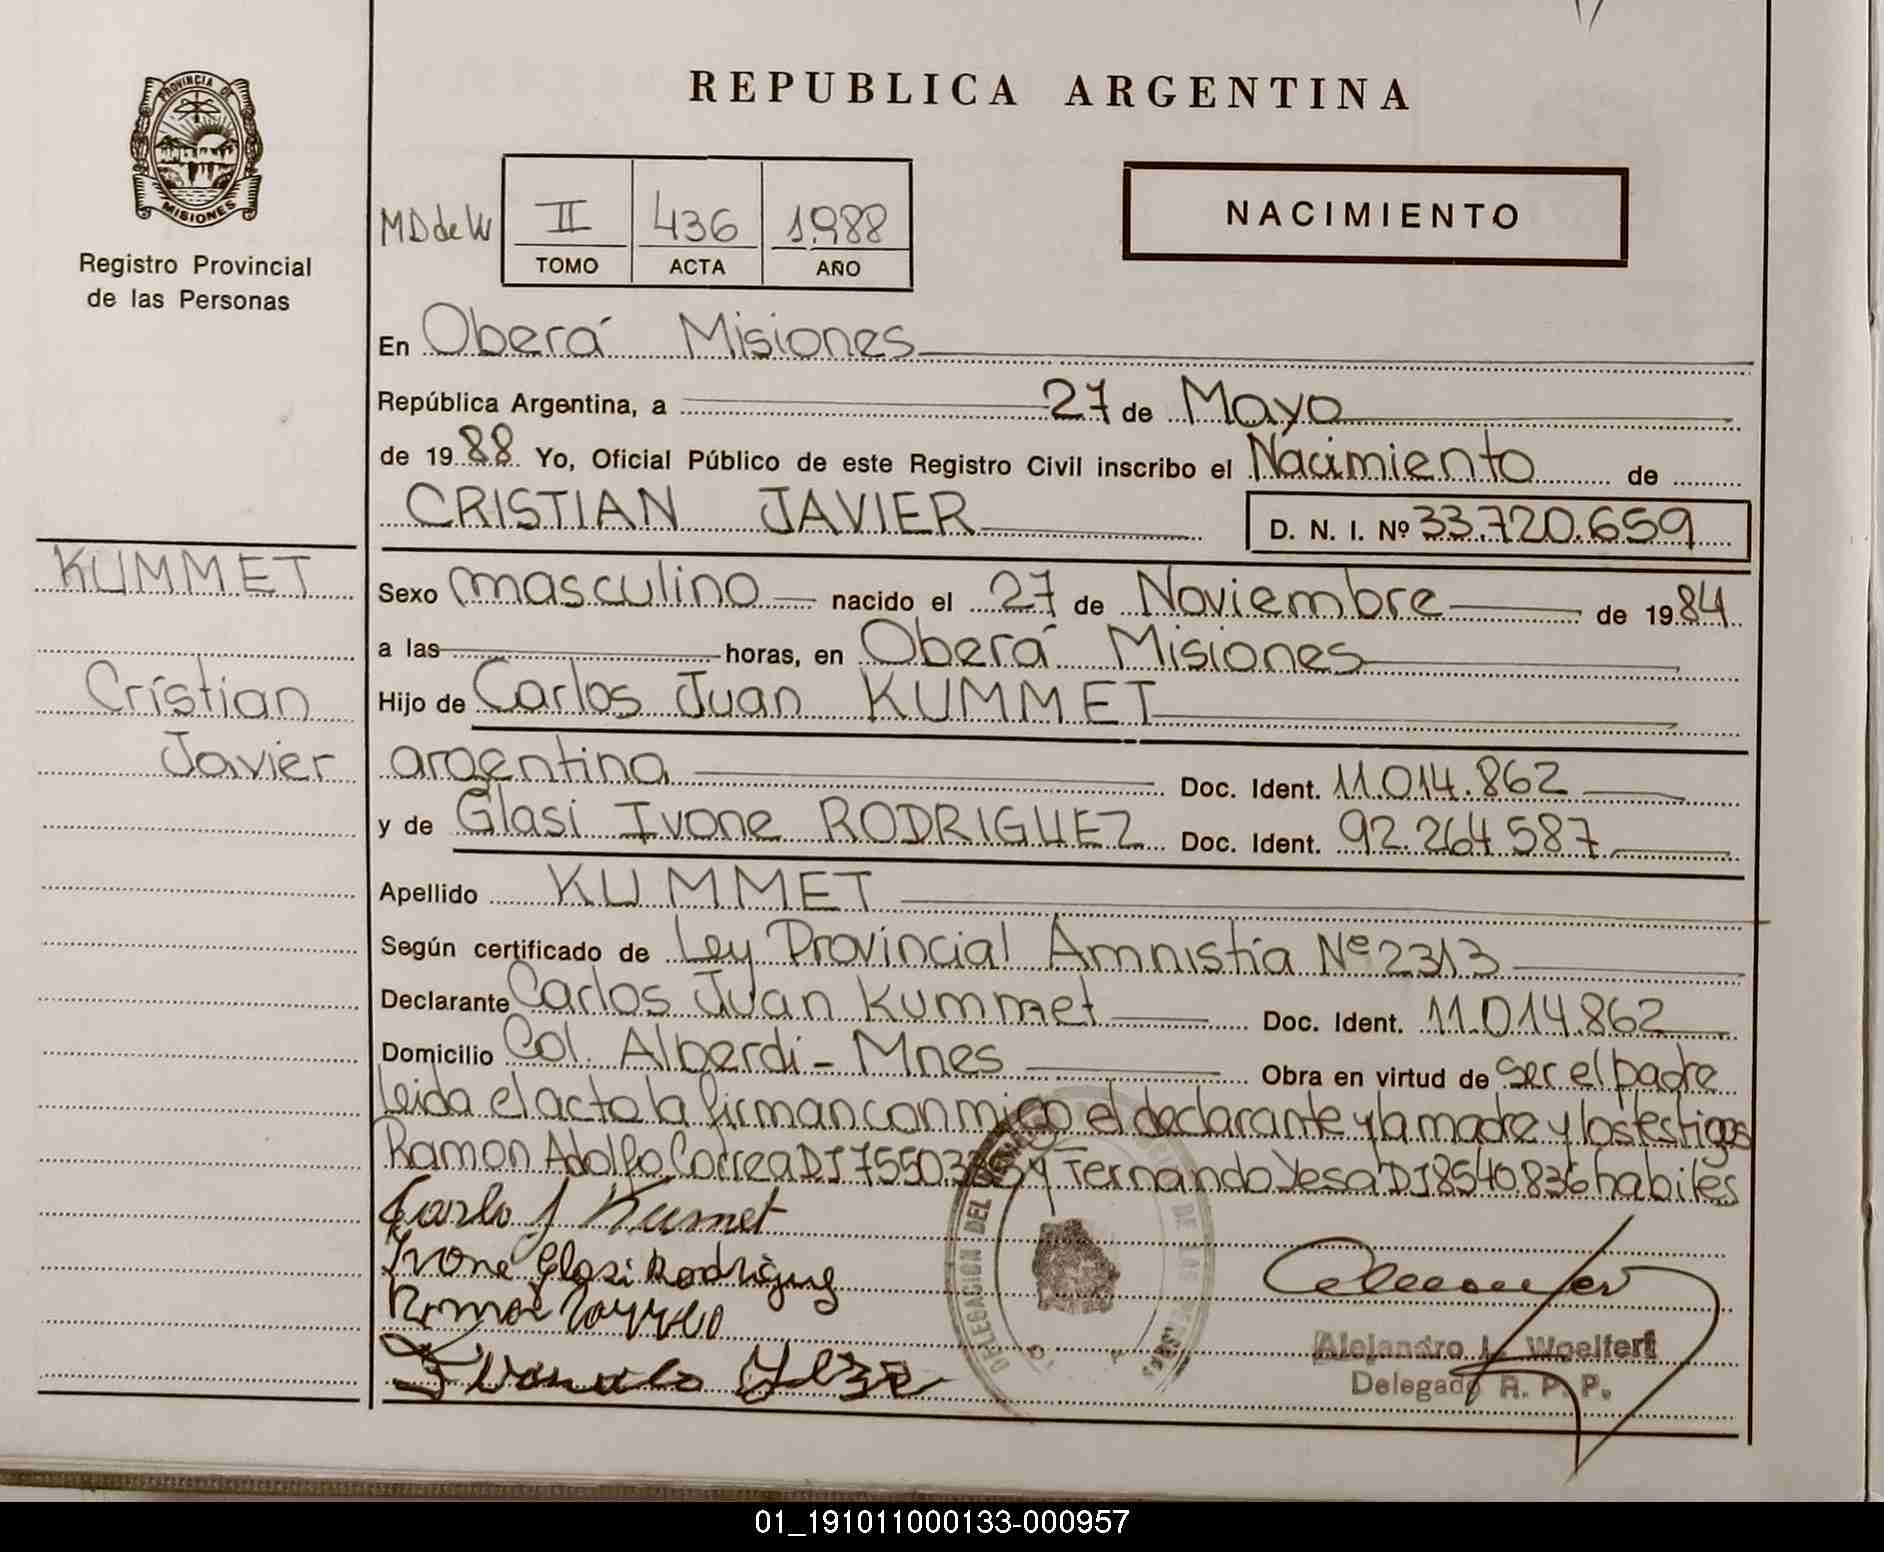 REPUBLICA ARGENTINA
PROVINCIA DE
MISIONES
Registro Provincial
de las Personas
MD de W
II 436 1.988
TOMO ACTA AÑO
NACIMIENTO
En Oberá Misiones
República Argentina, a 27 de Mayo
de 1988 Yo, Oficial Público de este Registro Civil inscribo el Nacimiento de
CRISTIAN JAVIER D. N. I. Nº 33.720.659
KUMMET
Cristian
Javier
Sexo masculino nacido el 27 de Noviembre de 1984
a las horas, en Oberá Misiones
Hijo de Carlos Juan KUMMET
argentina Doc. Ident. 11.014.862
y de Glasi Ivone RODRIGUEZ Doc. Ident. 92.264.587
Apellido KUMMET
Según certificado de Ley Provincial Amnistía Nº 2313
Declarante Carlos Juan Kummet Doc. Ident. 11.014.862
Domicilio Col. Alberdi - Mnes Obra en virtud de ser el padre
leida el acto la firman conmigo el declarante y la madre y los testigos
Ramon Adolfo Correa DI y Fernando Yesa DI 8540.836 habiles
Carlo J Kummet
Ivone Glasi Rodriguez
DELEGACION DEL
Alejandro L. Woelfert
Delegado R. P. P.
01_191011000133-000957